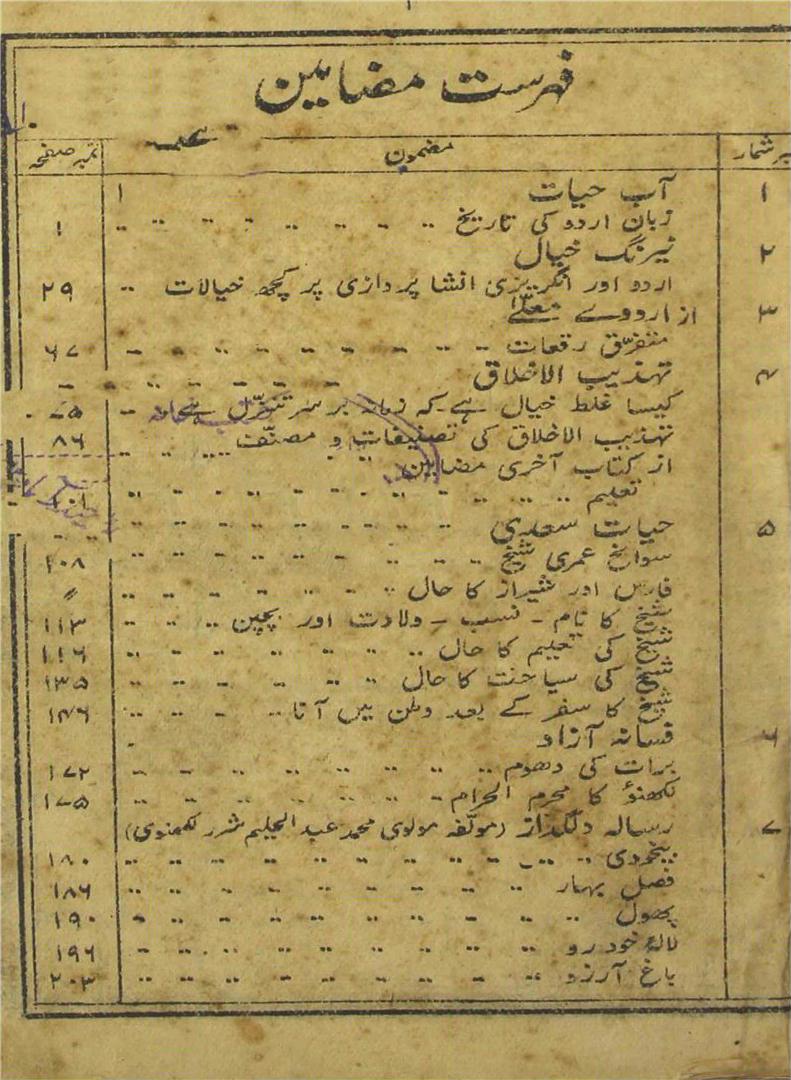 ۱
فہرست مضامین
نمبر شمار مضمون نمبر صفحہ
۱ آب حیات ۱
زبان اردو کی تاریخ ۱
۲ نیرنگ خیال
اردو اور انگریزی انشا پردازی پر کچھ خیالات ۲۹
۳ از اردوے معلّےٰ
متفرق رقعات ۶۷
۴ تہذیب الاخلاق
کیسا غلط خیال ہے کہ زمانہ برسر تنزّل ہے ۷۵
تہذیب الاخلاق کی تصنیفات و مصنّف ۸۶
از کتاب آخری مضامین
تعلیم
۵ حیات سعدی
سوانح عمری شیخ ۱۰۸
فارس اور شیراز کا حال 〃
شیخ کا نام - نسب - ولادت اور بچپن ۱۱۳
شیخ کی تعلیم کا حال ۱۱۶
شیخ کی سیاحت کا حال ۱۳۵
شیخ کا سفر کے بعد وطن میں آنا ۱۴۶
۶ فسانہ آزاد
برات کی دھوم ۱۷۲
لکھنؤ کا محرم الحرام ۱۷۵
۷ رسالہ دلگداز (مولّفہ مولوی محمد عبد الحلیم شرر لکھنوی)
بیخودی ۱۸۰
فصل بہار ۱۸۶
پھول ۱۹۰
لالۂ خودرو ۱۹۶
باغ آرزو ۲۰۳